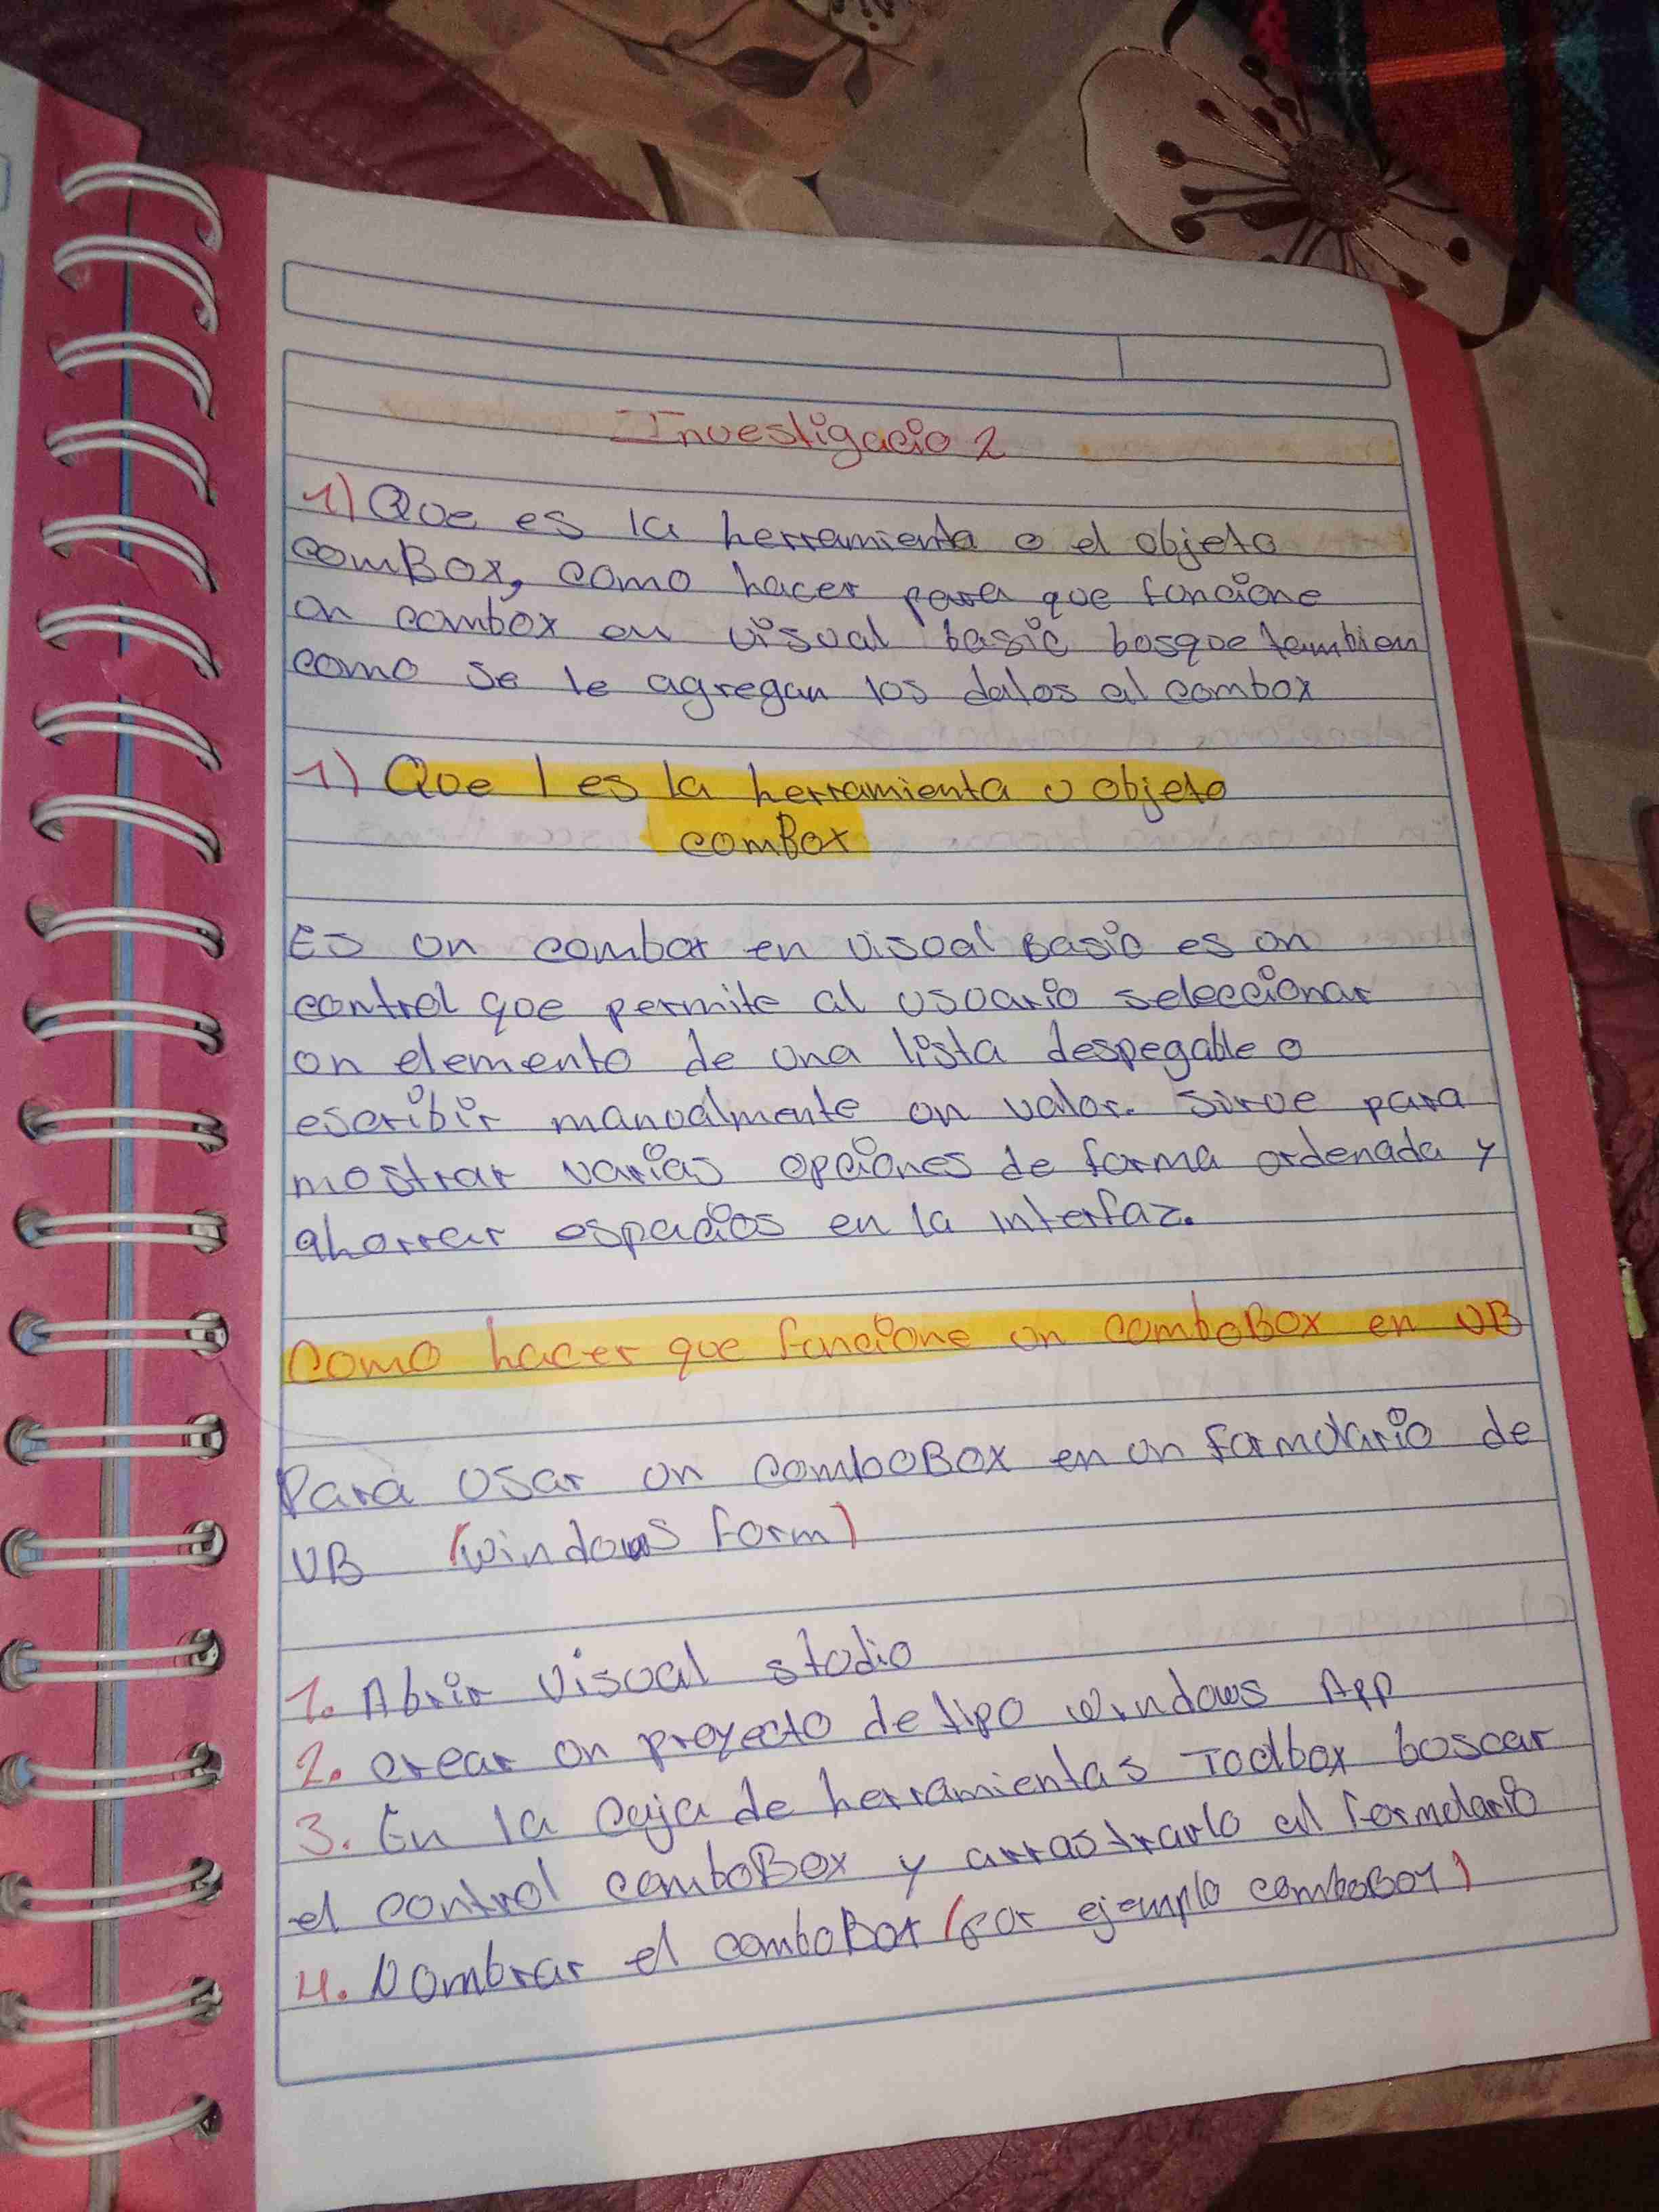 Investigacio 2
1) Que es la herramienta o el objeto
comBox, como hacer para que funcione
un combox en visual basic busque tambien
como se le agregan los datos al combox
1) Que 1 es la herramienta u objeto
comBox
Es un combox en visual Basic es un
control que permite al usuario seleccionar
un elemento de una lista despegable o
escribir manualmente un valor. Sirve para
mostrar varias opciones de forma ordenada y
ahorrar espacios en la interfaz.
Como hacer que funcione un comboBox en VB
Para usar un comboBox en un formulario de
VB (windows form)
1. Abrir Visual studio
2. crear un proyecto de tipo windows App
3. En la caja de herramientas Toolbox buscar
el control comboBox y arrastrarlo al formulario
4. Nombrar el comboBox (por ejemplo comboBox1)